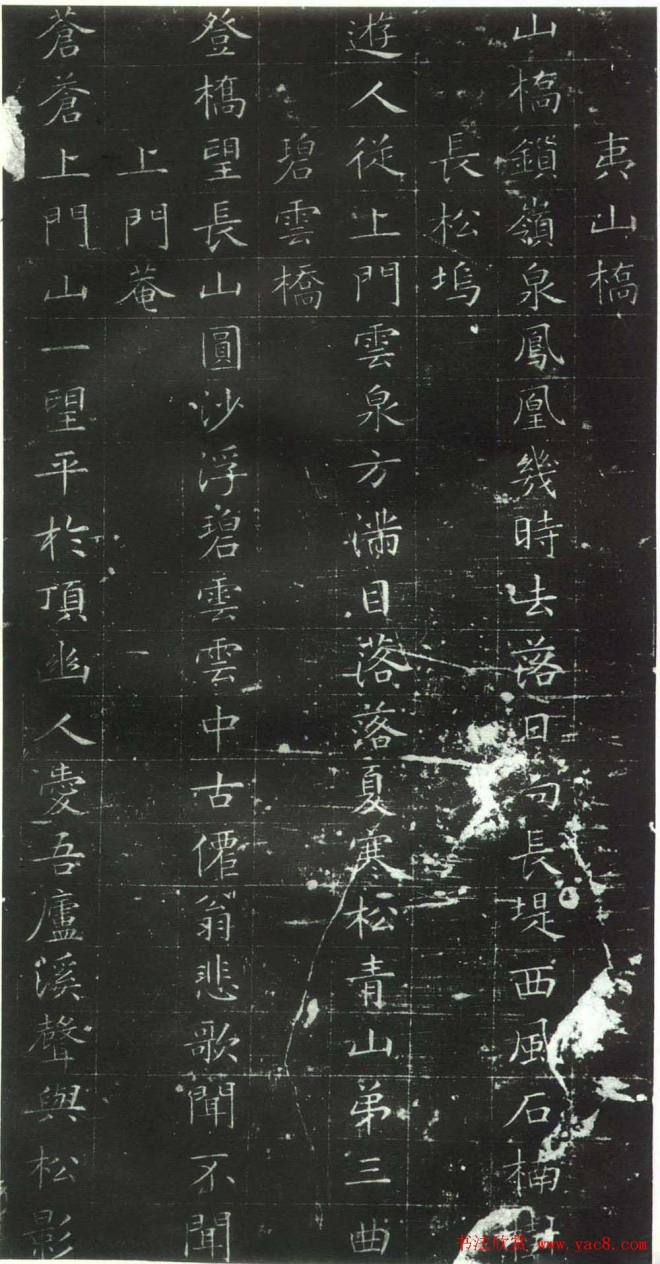 夷山橋
山橋鎖嶺泉鳳凰幾時去落日向長堤西風石楠樹
長松塢
遊人從上門雲泉方滿目落落夏寒松青山第三曲
碧雲橋
登橋望長山圓沙浮碧雲雲中古僊翁悲歌聞不聞
上門菴
蒼蒼上門山一望平於頂幽人愛吾廬溪聲與松影
书法欣赏 www.yac8.com